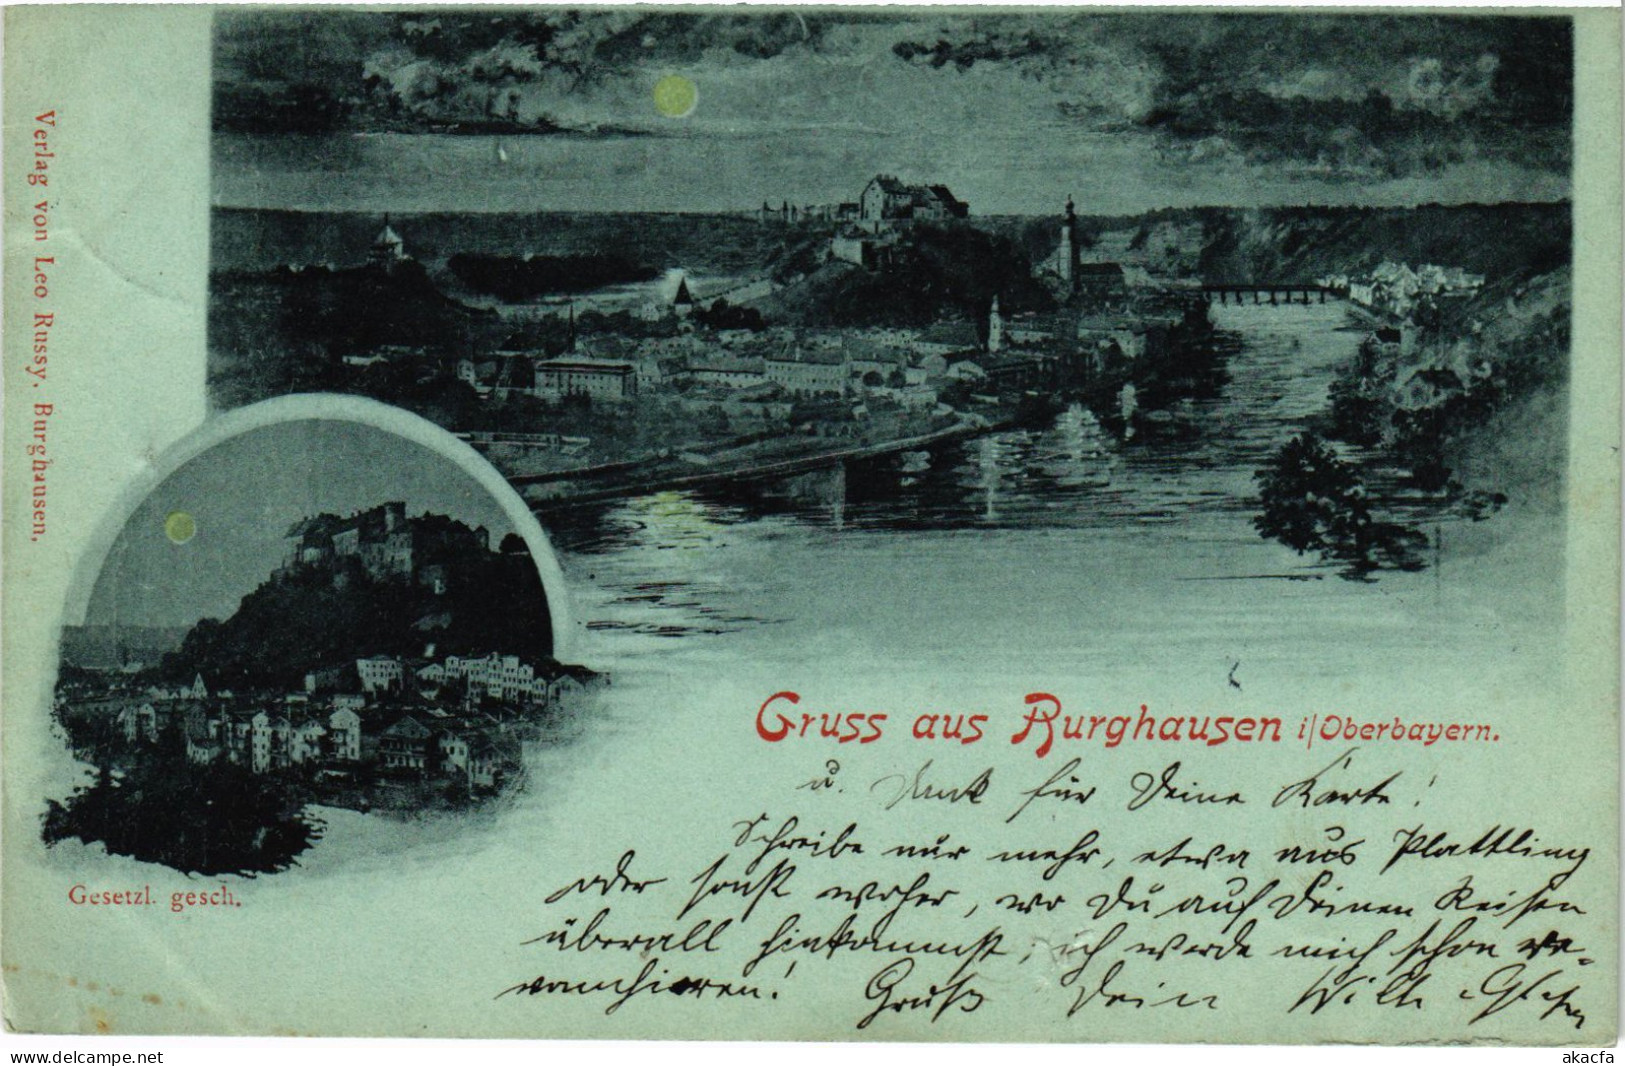 Verlag von Leo Russy, Burghausen.
Gesetzl. gesch.
Gruss aus Burghausen i/Oberbayern.
u. Dank für Deine Karte!
Schreibe nur mehr, etwa aus Plattling
oder sonst woher, wo Du auf Deinen Reisen
überall hinkommst, ich werde mich schon re-
vanchieren! Gruß Dein Willi
akacfa